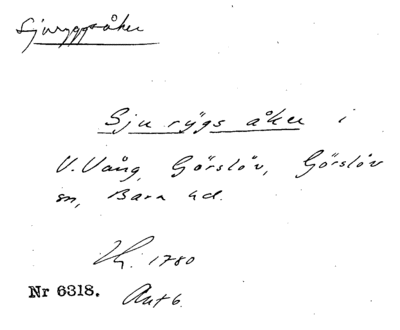 Sjuryggsåker
Sju rÿgs åker i
V. Vång, Görslöv, Görslöv
sn, Bara hd.
Lh. 1780
Nr 6318. Akt 6.